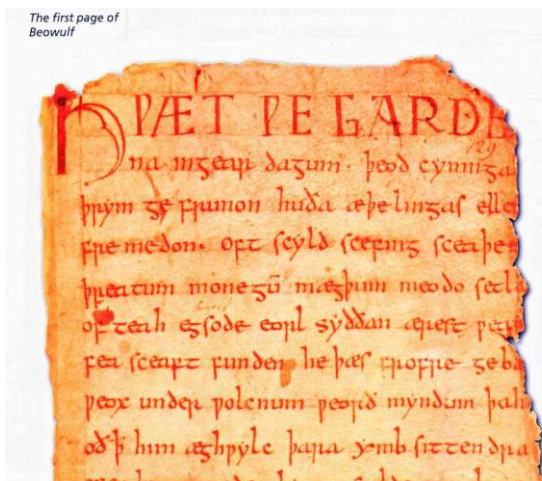 The first page of
Beowulf
HǷÆT ǷE GARDE
na ingear dagum · þeod cyninga
þrym ge frunon huða æþelingas elle
fremedon. oft scyld scefing sceaþe
þreatum monegū mægþum meodo setla
of teah egsode eorl syððan ærest ƿea
fea sceaft funden he þæs frofre geba
ƿeox under ƿolcnum ƿeorð myndum þah
oð þ him æghƿylc þara ymb sittendra